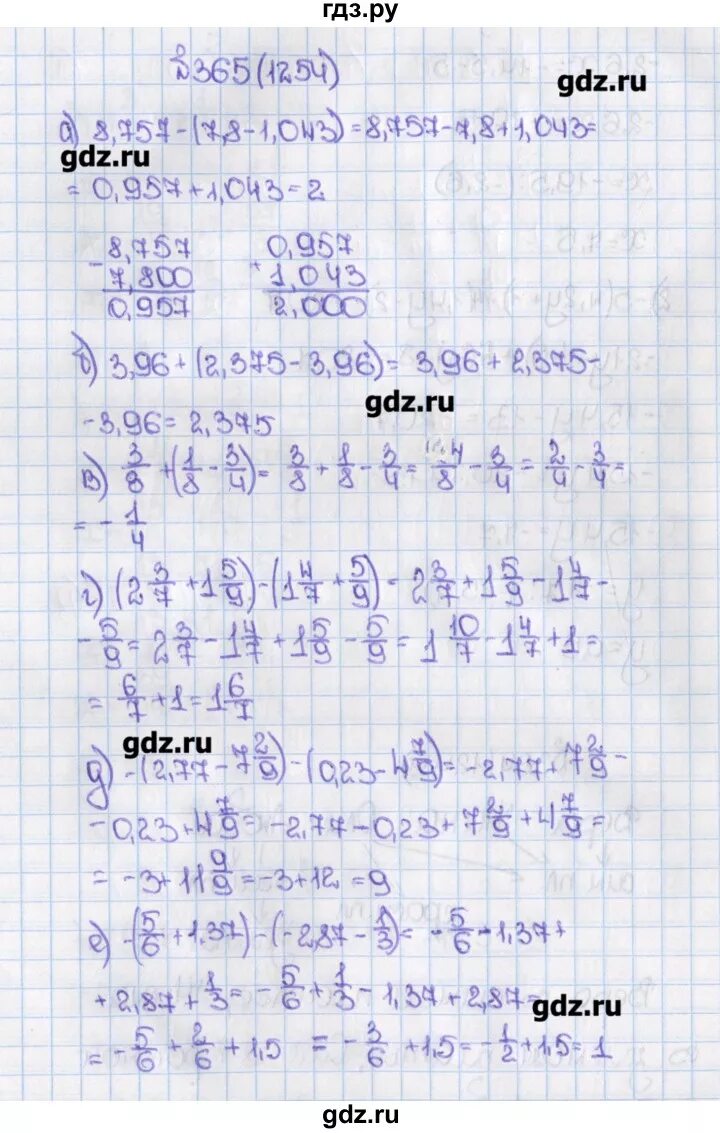 гдз.ру
№365(1254)
gdz.ru
а) 8,757-(7,8-1,043)=8,757-7,8+1,043=
gdz.ru
= 0,957+1,043=2
-8,757 0,957
7,800 +1,043
0,957 2,000
б) 3,96+(2,375-3,96)= 3,96+2,375-
gdz.ru
-3,96= 2,375
в) 3/8 +(1/8 - 3/4)= 3/8 + 1/8 - 3/4 = 4/8 - 3/4 = 2/4 - 3/4 =
= - 1/4
г) (2 3/7 +1 5/9)-(1 4/7 + 5/9)= 2 3/7 +1 5/9 -1 4/7 -
- 5/9 = 2 3/7 -1 4/7 +1 5/9 - 5/9 = 1 10/7 -1 4/7 +1=
= 6/7 +1=1 6/7
gdz.ru
д) -(2,77-7 2/9)-(0,23-4 7/9)=-2,77+7 2/9 -
-0,23+4 7/9 =-2,77-0,23+7 2/9 +4 7/9 =
= -3+11 9/9 =-3+12=9
е) -(5/6 +1,37)-(-2,87- 1/3)= - 5/6 -1,37+
+2,87+ 1/3 = - 5/6 + 1/3 -1,37+2,87=
gdz.ru
= - 5/6 + 2/6 +1,5 = - 3/6 +1,5=- 1/2 +1,5=1
gdz.ru